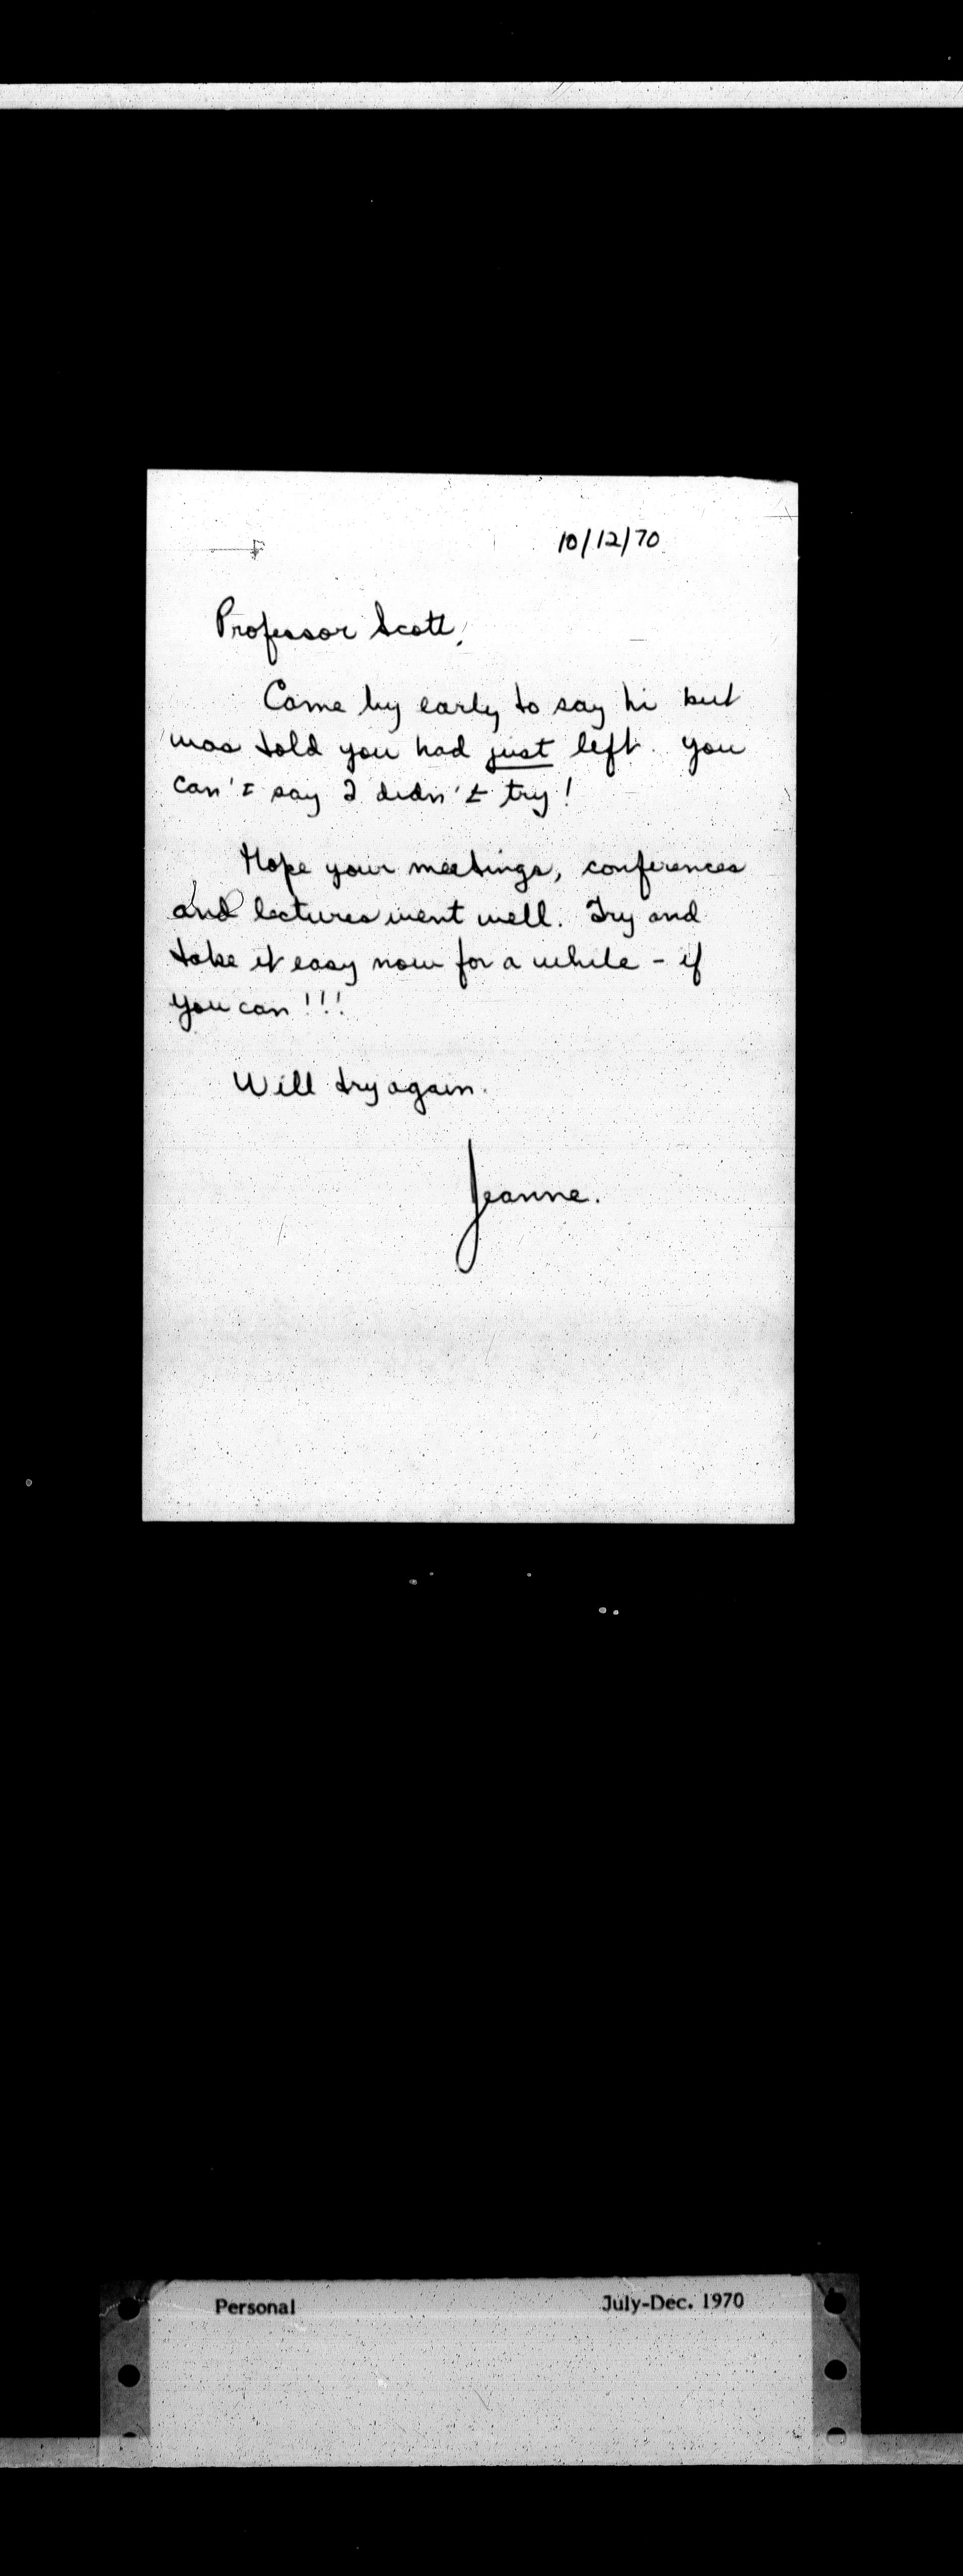 10/12/70
Professor Scott,
Came by early to say hi but
was told you had just left. You
can't say I didn't try!
Hope your meetings, conferences
and lectures went well. Try and
take it easy now for a while - if
you can!!!
Will try again.
Jeanne.
Personal July-Dec. 1970